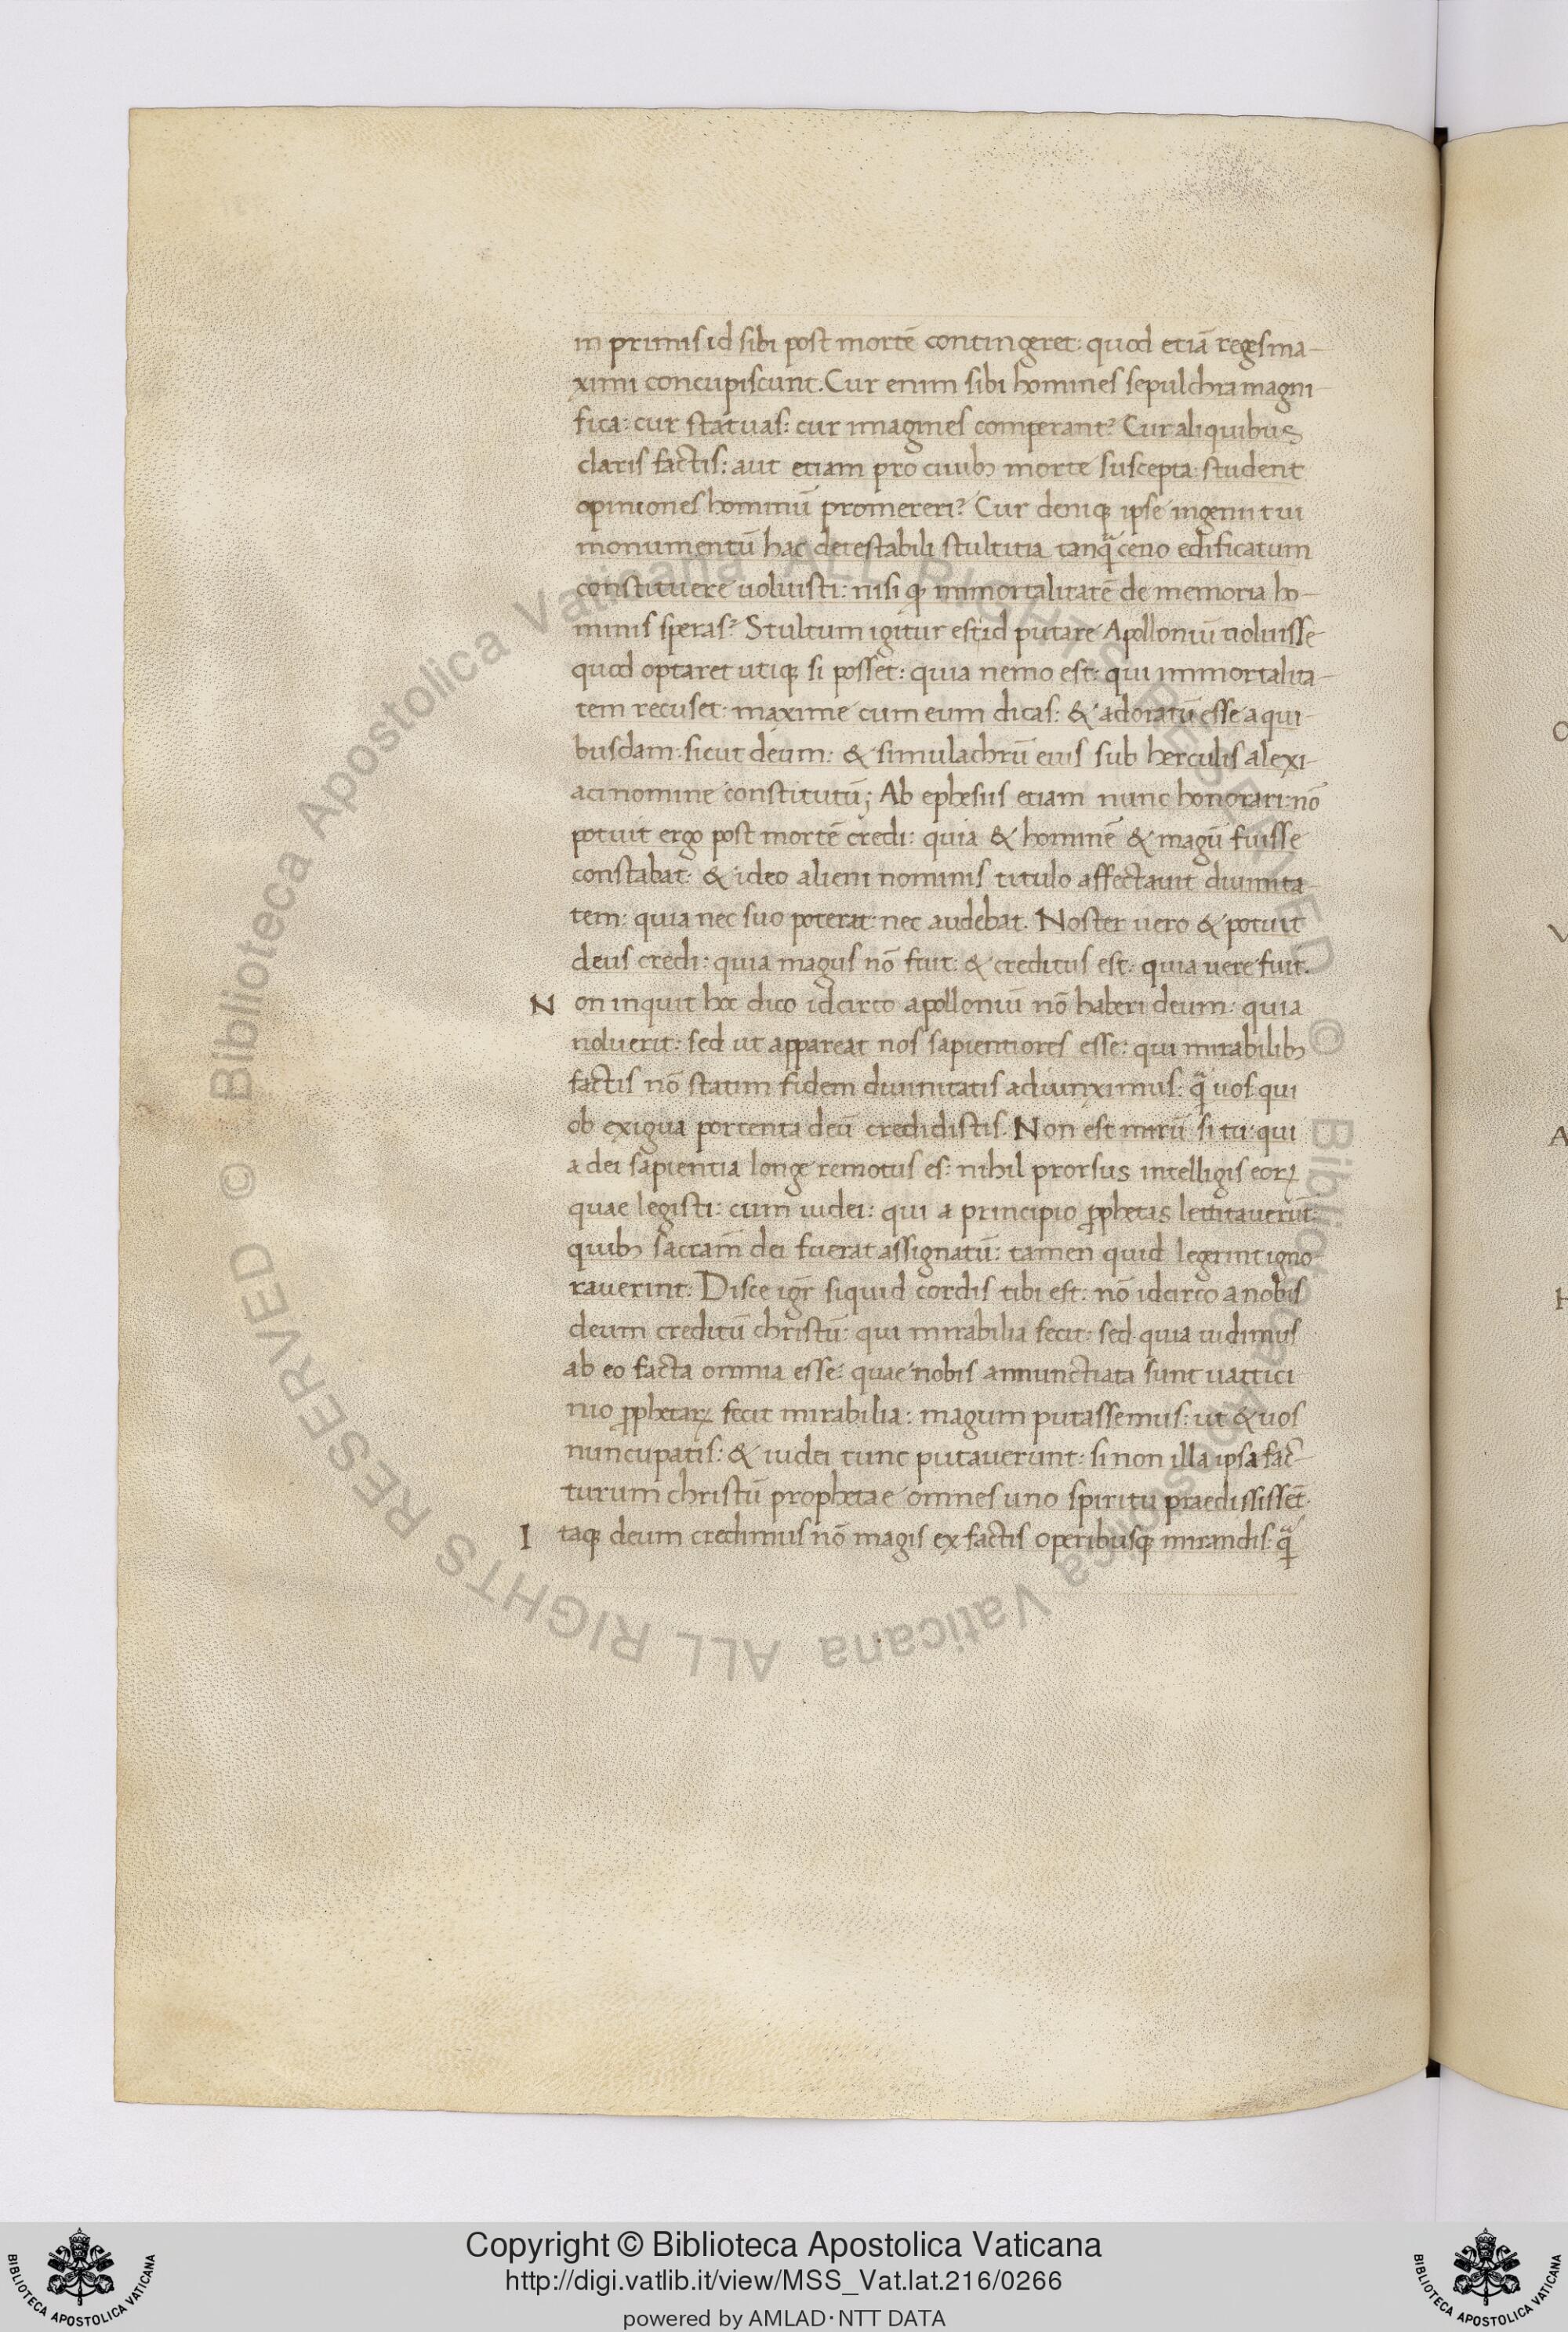 in primis id sibi post mortē contingeret: quod etiā reges ma-
ximi concupiscunt. Cur enim sibi homines sepulchra magni
fica: cur statuas: cur imagines comperant? Cur aliquibus
claris factis: aut etiam pro ciuibȝ morte suscepta: student
opiniones hominū promereri? Cur deniqȝ ipse ingenii tui
monumentū hac detestabili stultitia tanq̄ ceno edificatum
constituere uoluisti: nisi qȝ immortalitatē de memoria ho-
minis speras? Stultum igitur est id putare Apolloniū noluisse
quod optaret utiqȝ si posset: quia nemo est: qui immortalita-
tem recuset: maxime cum eum dicas: & adoratū esse a qui-
busdam sicut deum: & simulachrū eius sub herculis alexi-
aci nomine constitutū; Ab ephesiis etiam nunc honorari: nō
potuit ergo post mortē credi: quia & hominē & magū fuisse
constabat: & ideo alieni nominis titulo affectauit diuinita-
tem: quia nec suo poterat: nec audebat. Noster uero & potuit
deus credi: quia magus nō fuit: & creditus est: quia uere fuit.
Non inquit hoc dico idcirco apolloniū nō haberi deum: quia
noluerit: sed ut appareat nos sapientiores esse: qui mirabilibȝ
factis nō statim fidem diuinitatis adiunximus: q̄ uos qui
ob exigua portenta deū credidistis. Non est mirū: si tu: qui
a dei sapientia longe remotus es: nihil prorsus intelligis eorꝝ
quae legisti: cum iudei: qui a principio ꝓphetas lettitauerūt:
quibȝ sacram̄ dei fuerat assignatū: tamen quid legerint igno-
rauerint: Disce igr̄ siquid cordis tibi est: nō idcirco a nobis
deum creditū christū: qui mirabilia fecit: sed quia uidimus
ab eo facta omnia esse: quae nobis annunctiata sunt uattici-
nio ꝓphetarꝝ fecit mirabilia: magum putassemus: ut & uos
nuncupatis: & iudei tunc putauerunt: si non illa ipsa fac-
turum christū prophetae omnes uno spiritu praedississēt.
Itaqȝ deum credimus nō magis ex factis operibusqȝ mirandis: q̄
© Biblioteca Apostolica Vaticana ALL RIGHTS RESERVED © Biblioteca Apostolica Vaticana ALL RIGHTS RESERVED
BIBLIOTECA APOSTOLICA VATICANA
Copyright © Biblioteca Apostolica Vaticana
http://digi.vatlib.it/view/MSS_Vat.lat.216/0266
powered by AMLAD·NTT DATA
BIBLIOTECA APOSTOLICA VATICANA